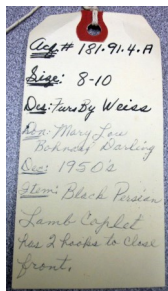 Acq# 181.91.4.A
Size: 8-10
Des: Furs By Weiss
Don: Mary Lou
Bohnas Darling
Dec: 1950's
Item: Black Persian
Lamb Caplet
Has 2 Hooks to Close
front.